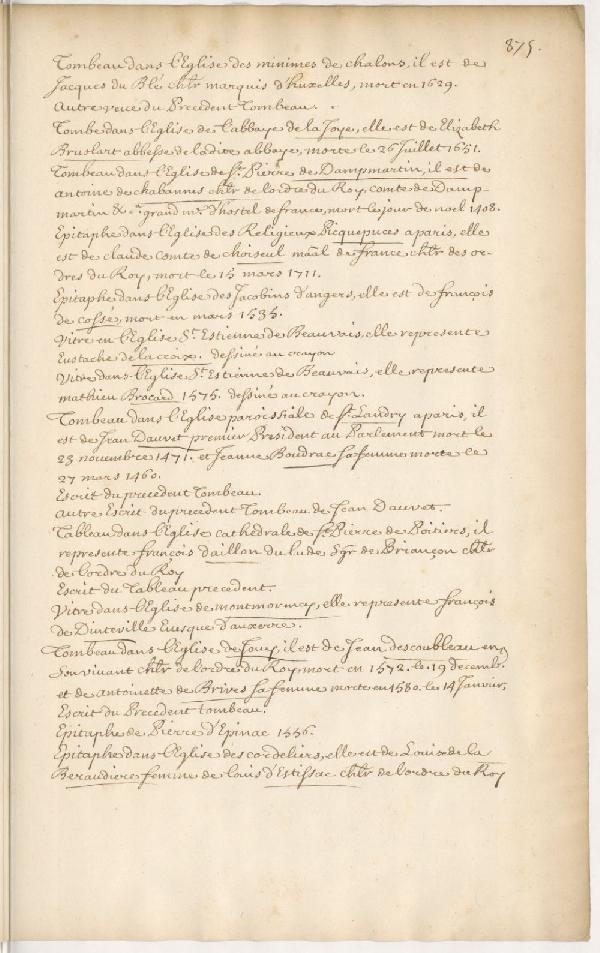 875.
Tombeau dans l'Eglise des minimes de chalons, il est de
Jacques du Blé chlr marquis d'huxelles, mort en 1629.
Autre veue du Precedent Tombeau.
Tombe dans l'Eglise de l'abbaye de la Joye, elle est de Elizabeth
Bruslart abbesse de ladite abbaye, morte le 26 Juillet 1651.
Tombeau dans l'Eglise de St. Pierre de Dampmartin, il est de
antoine de chabannes chlr de l'ordre du Roy, comte de Damp-
martin &ca. grand me. d'hostel de france, mort le jour de noel 1408.
Epitaphe dans l'Eglise des Religieux Picquepuces a paris, elle
est de claude comte de choiseul maal de france chlr des or-
dres du Roy, mort le 15 mars 1711.
Epitaphe dans l'Eglise des Jacobins d'angers, elle est de françois
de cossé, mort en mars 1535.
Vitre en l'Eglise St. Estienne de Beauvais, elle represente
Eustache de la croix. dessiné au crayon
Vitre dans l'Eglise St. Estienne de Beauvais, elle represente
mathieu Brocard 1575. dessiné au crayon.
Tombeau dans l'Eglise paroissiale de St. Landry a paris, il
est de Jean Dauvet premier President au Parlement mort le
23 novembre 1471. et Jeanne Boudrac sa femme morte le
27 mars 1460.
Escrit du precedent Tombeau.
Autre Escrit du precedent Tombeau de Jean Dauvet.
Tableau dans l'Eglise cathedrale de St. Pierre de Poitiers, il
represente françois daillon du lude Sgr de Briançon chlr
de l'ordre du Roy
Escrit du Tableau precedent.
Vitre dans l'Eglise de montmorency, elle represente françois
de Dinteville Evesque d'auxerre.
Tombeau dans l'Eglise de Jouy, il est de Jean descoubleau en
Son vivant chlr de l'ordre du Roy mort en 1572. le 19 decembr.
et de Antoinette de Brives sa femme morte en 1580. le 14 Janvir.
Escrit du Precedent tombeau.
Epitaphe de Pierre d'Epinac 1556.
Epitaphe dans l'Eglise des cordeliers, elle est de Louise de la
Beraudiere femme de louis d'Estissac chlr de l'ordre du Roy